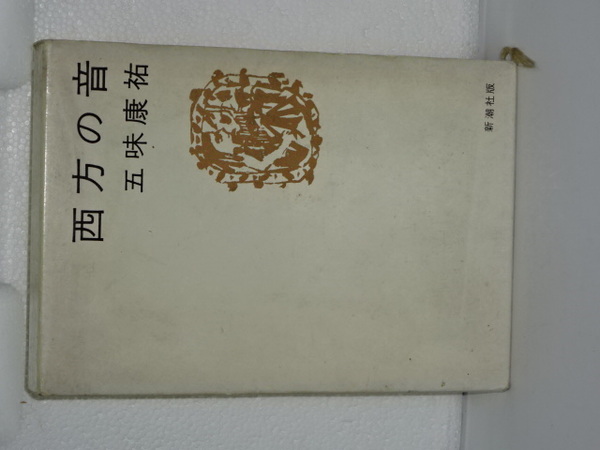 西方の音
五味康祐
新潮社版